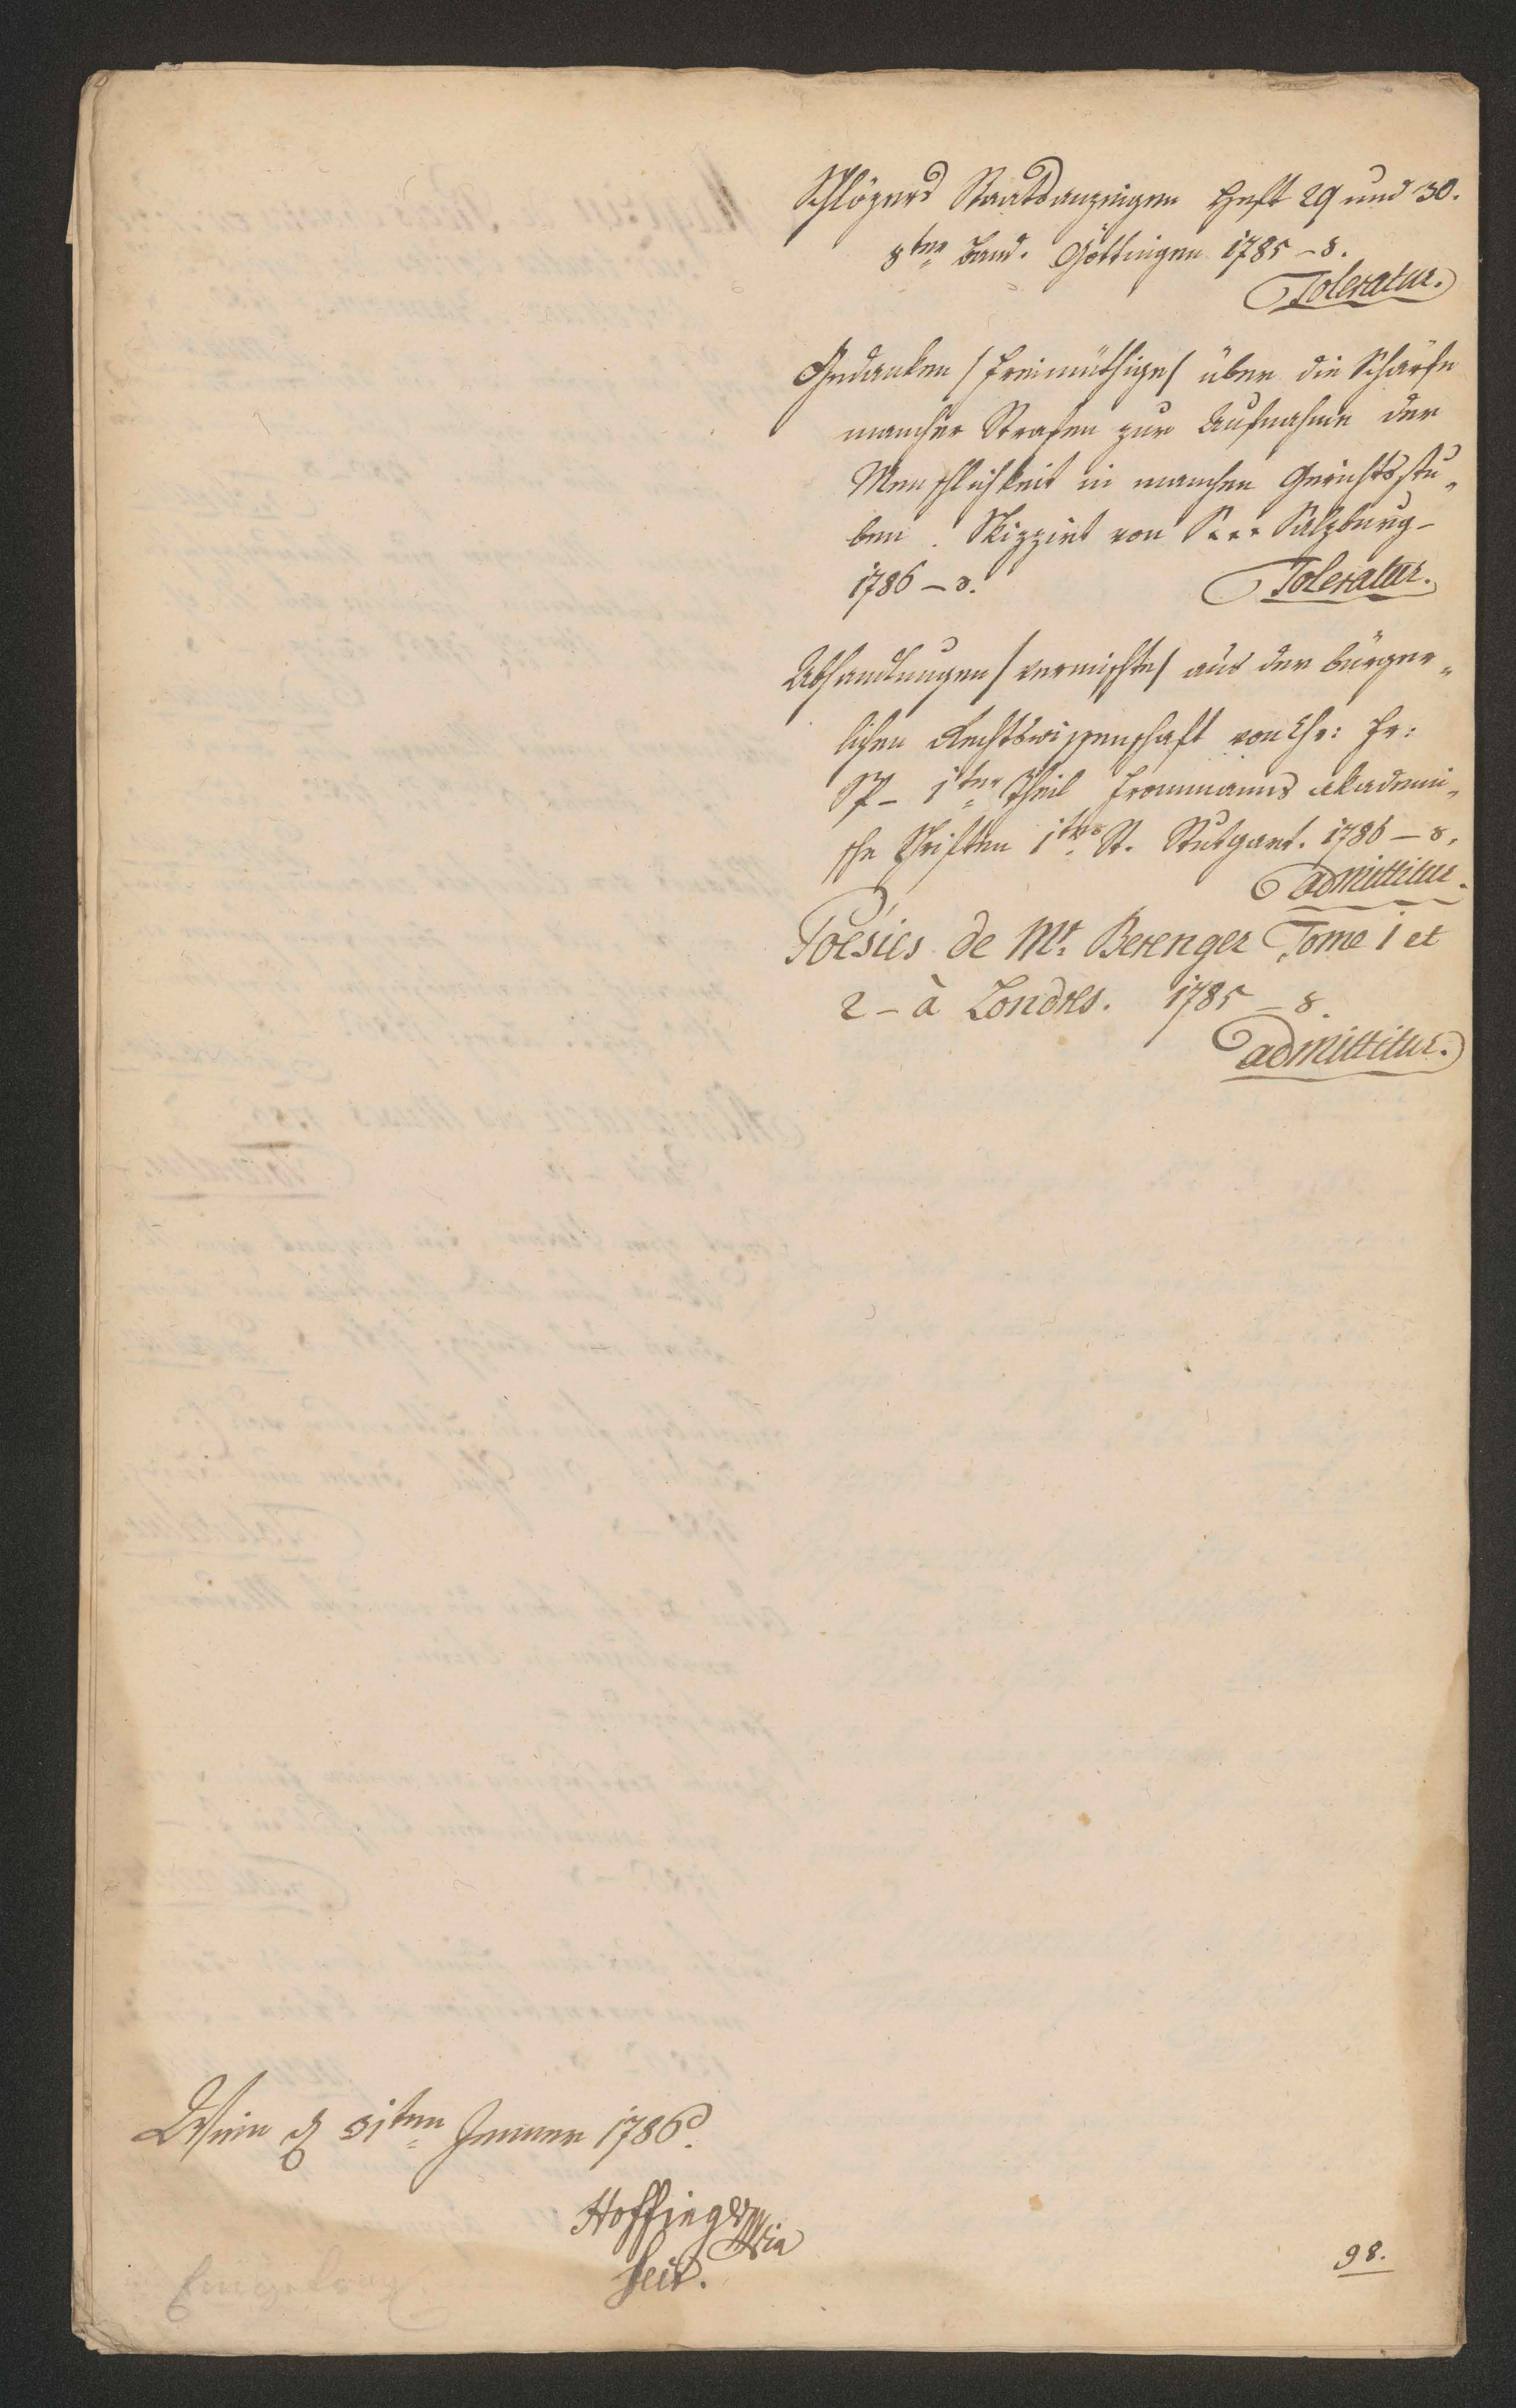 Schlözers Staatsanzeigen Heft 29 und 30.
8ter Band. Göttingen 1785 - 8.
Toleratur.
Gedanken /freimüthige/ über die Schärfe
mancher Strafen zur Aufnahme der
Menschlichkeit in manchen Gerichtsstu„
ben. Skizzirt von S... Salzburg -
1786 - 8.
Toleratur.
Abhandlungen /vermischte/ aus der bürger„
lichen Rechtswissenschaft von Chr: Fr:
1ter Theil Frommanns akademi„
sche Schriften 1tes St. Stutgart. 1786 - 8.
admittitur.
Poësies de Mr. Berenger Tome 1 et
2 - à Londres. 1785 - 8.
admittitur.
Wien d 31ten Jenner 1786.
Hoffinger
98.